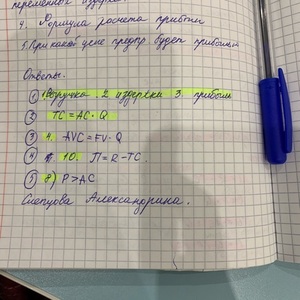 переменных издерж
4. Формула расчета прибыли
5. При какой цене предпр будет прибыльн
Ответы.
① 1 Выручка. 2 издержки 3. прибыль
② TC = AC · Q
③ 4. AVC = FV · Q
④ 10. П = R - TC.
⑤ 8) P > AC
Слепцова Александрина.